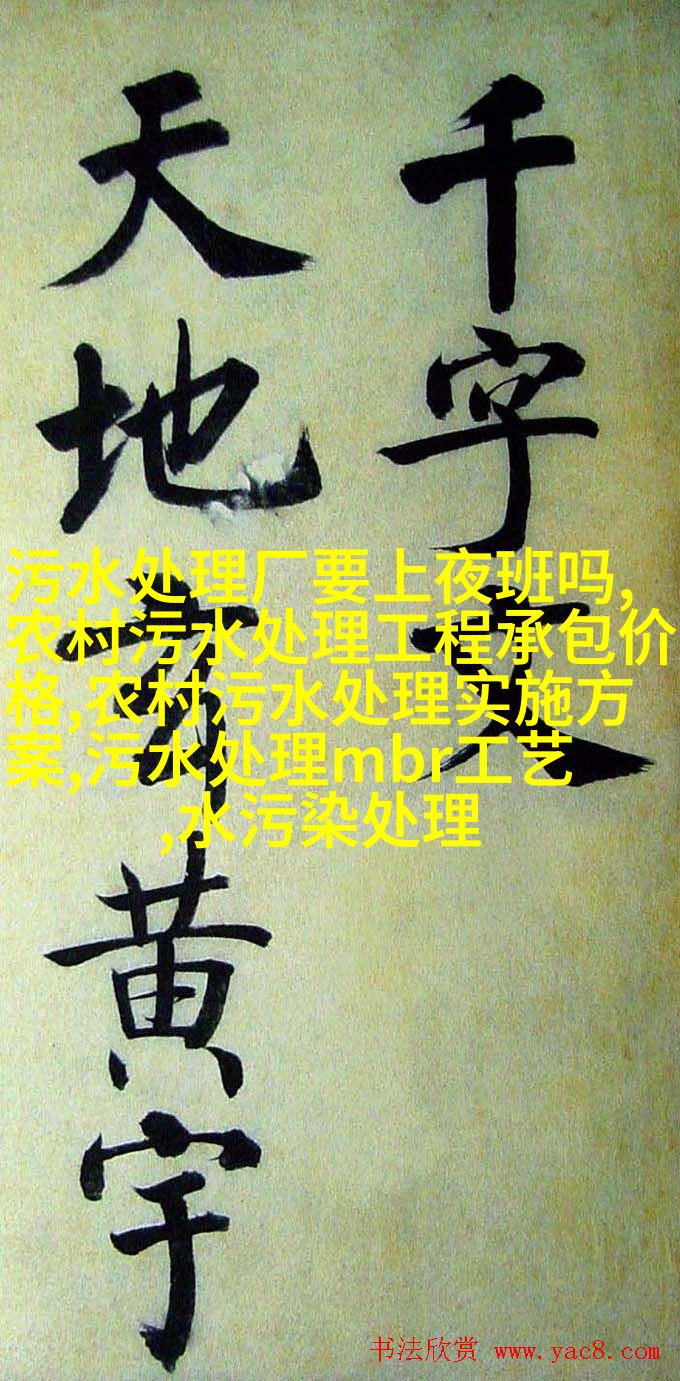 千字文
天地玄黄宇
污水处理厂要上夜班吗,
农村污水处理工程承包价
格,农村污水处理实施方
案,污水处理mbr工艺
,水污染处理
书法欣赏 www.yac8.com